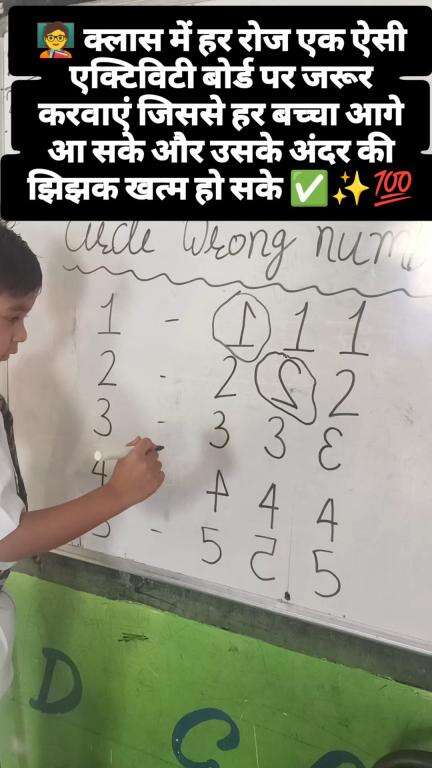 👩‍🏫 क्लास में हर रोज एक ऐसी
एक्टिविटी बोर्ड पर जरूर
करवाएं जिससे हर बच्चा आगे
आ सके और उसके अंदर की
झिझक खत्म हो सके ✅✨💯
Circle Wrong num
1 - 1 1 1
2 - 2 2 2
3 - 3 3 3
4 4 4 4
5 - 5 5 5
D C